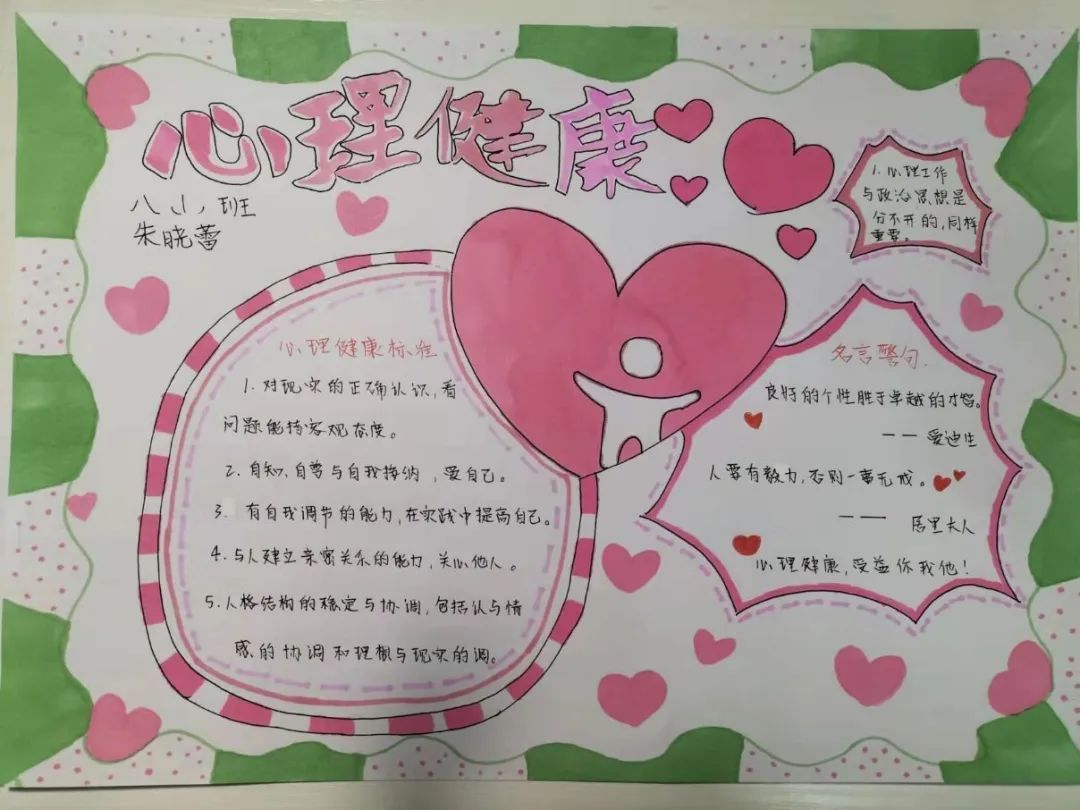 心理健康
八(1)班
朱晓蕾
1.心理工作
与政治思想是
分不开的,同样
重要。
心理健康标准
1.对现实的正确认识,看
问题能持客观态度。
2.自知,自尊与自我接纳,爱自己。
3.有自我调节的能力,在实践中提高自己。
4.与人建立亲密关系的能力,关心他人。
5.人格结构的稳定与协调,包括认与情
感的协调和理想与现实的调。
名言警句.
良好的个性胜于卓越的才智。
——爱迪生
人要有毅力,否则一事无成。
——居里夫人
心理健康,受益你我他!